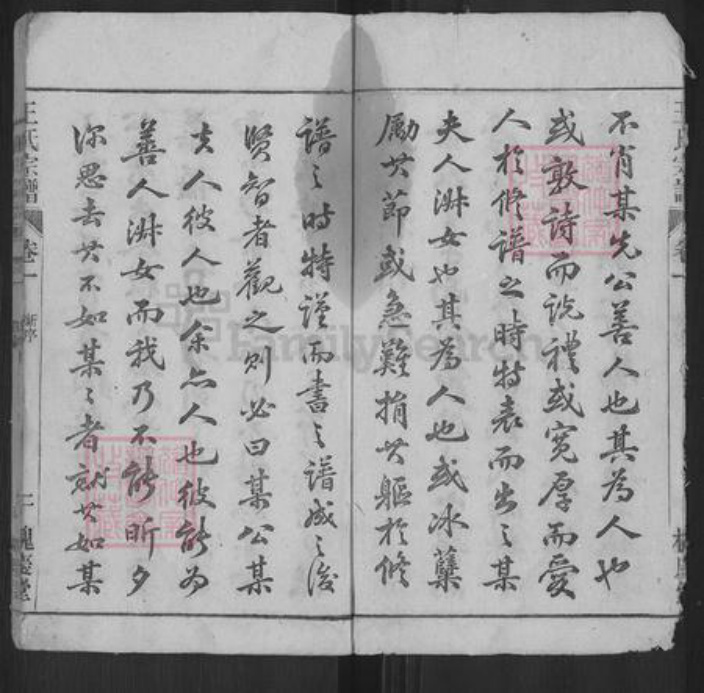 不肖某先公善人也其為人也
或敦詩而說禮或寬厚而愛
人於修譜之時特表而出之某
夫人淑女也其為人也或冰蘗
勵其節或急難捐其軀於修
譜之時特謹而書之譜成之後
賢智者觀之則必曰某公某
夫人彼人也余亦人也彼能為
善人淑女而我乃不能昕夕
深思去其不如某某者就其如某
王氏宗譜
卷一
新序
二
槐蔭堂
FamilySearch